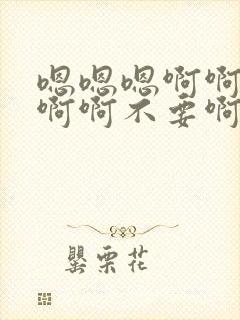 嗯嗯嗯啊啊
啊啊不要啊
罂栗花